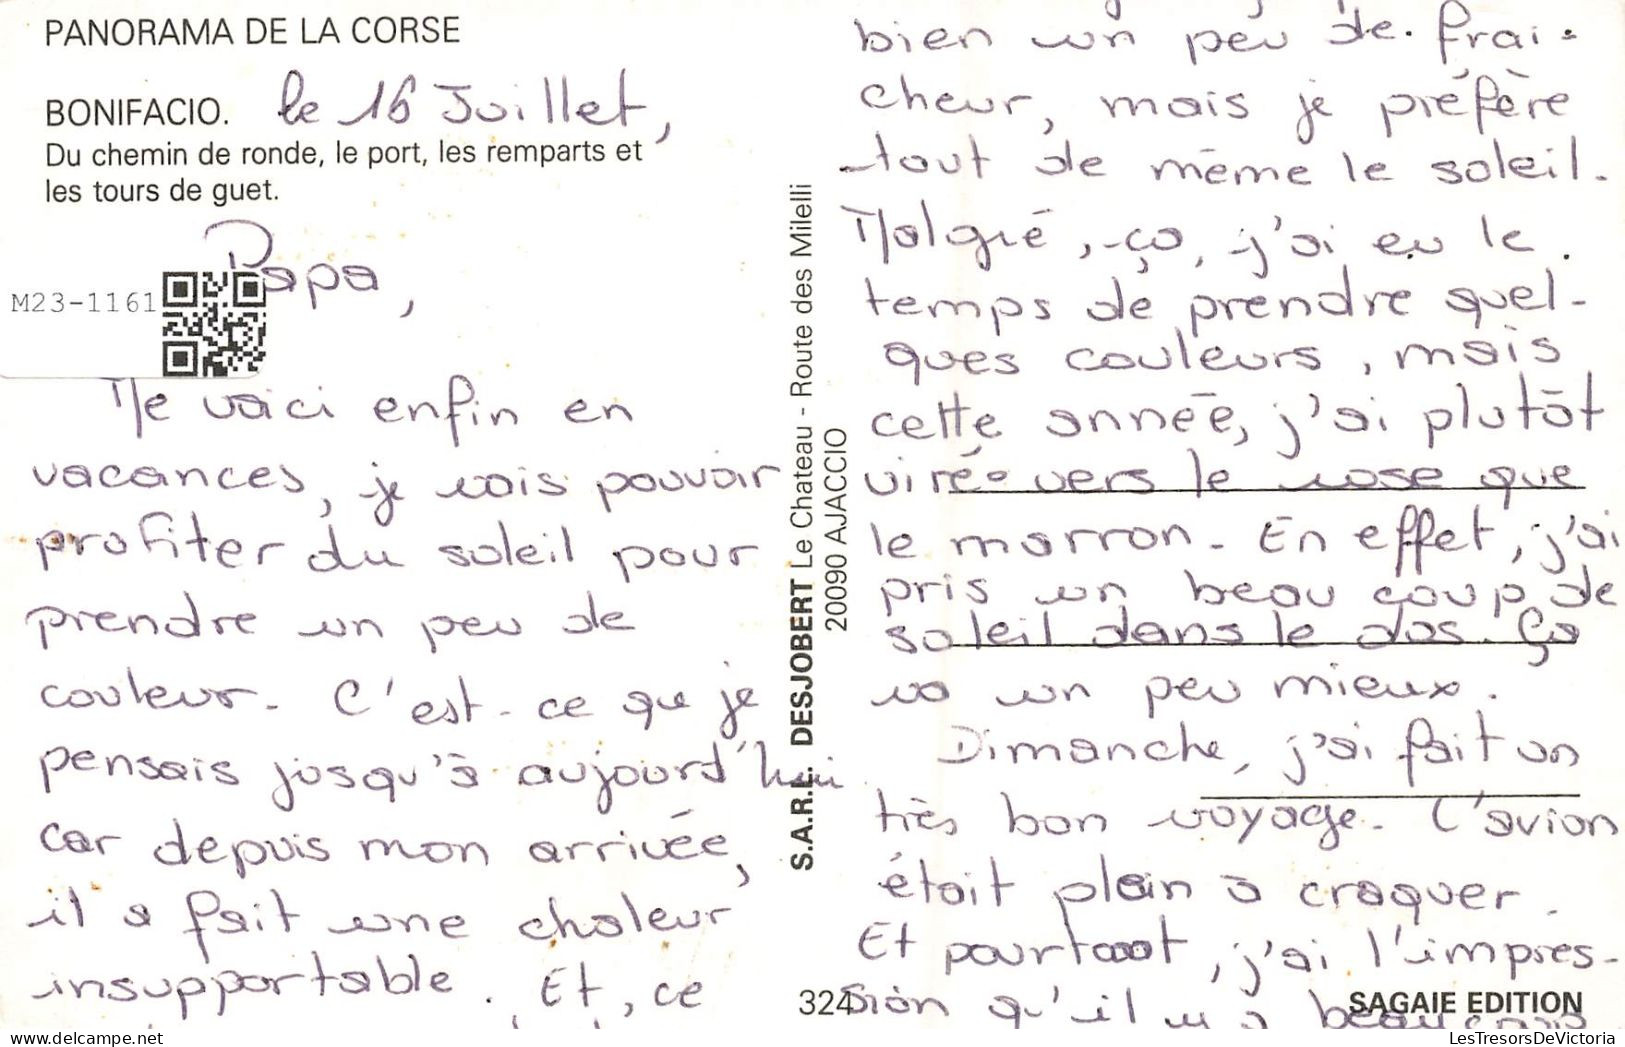 PANORAMA DE LA CORSE
BONIFACIO. le 16 Juillet,
Du chemin de ronde, le port, les remparts et
les tours de guet.
Papa,
M23-1161
Me voici enfin en
vacances, je vais pouvoir
profiter du soleil pour
prendre un peu de
couleur. C'est ce que je
pensais jusqu'à aujourd'hui
car depuis mon arrivée,
il a fait une chaleur
insupportable. Et, ce
S.A.R.L. DESJOBERT Le Chateau - Route des Milelli
20090 AJACCIO
324
bien un peu de frai-
cheur, mais je préfère
tout de même le soleil.
Malgré ça, j'ai eu le
temps de prendre quel-
ques couleurs, mais
cette année, j'ai plutôt
virée vers le rose que
le marron. En effet, j'ai
pris un beau coup de
soleil dans le dos. Ça
va un peu mieux.
Dimanche, j'ai fait un
très bon voyage. L'avion
était plein à craquer.
Et pourtant, j'ai l'impres-
sion qu'il y a beaucoup
SAGAIE EDITION
LesTresorsDeVictoria